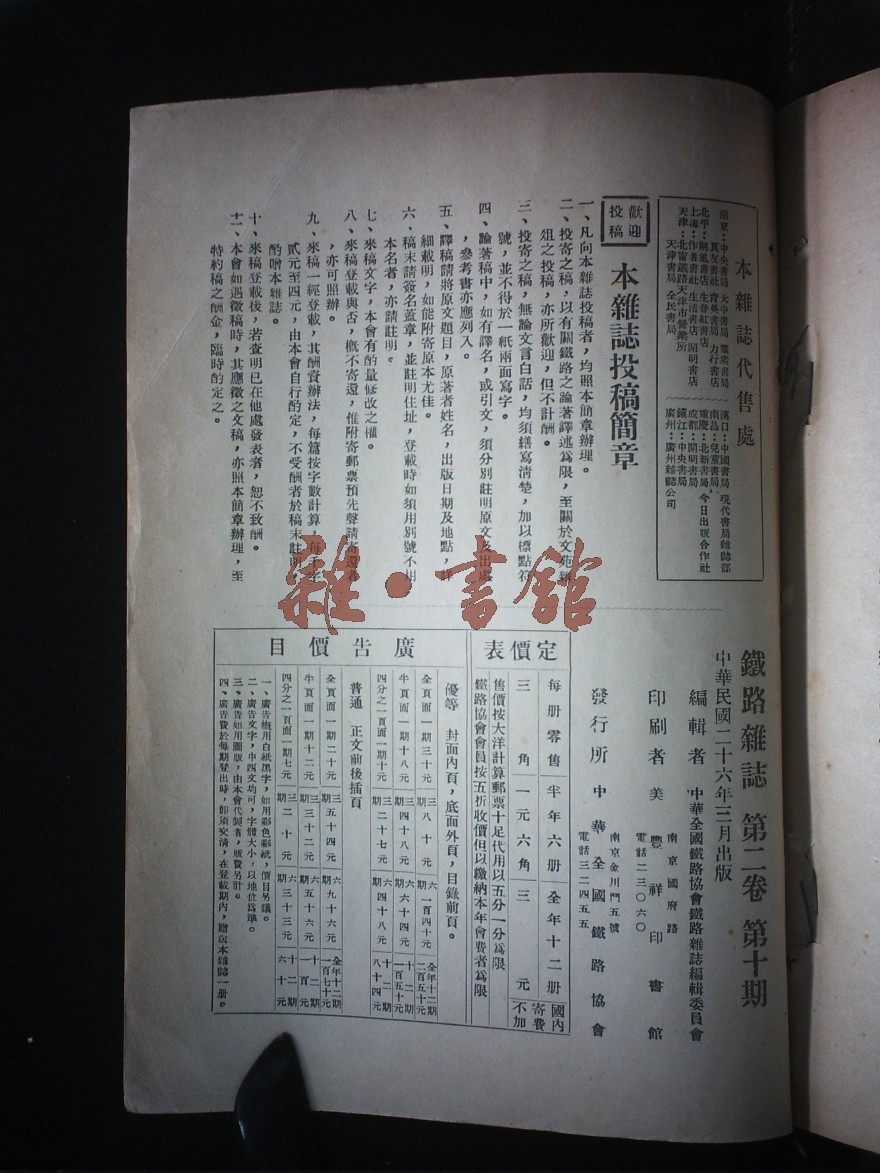 本雜誌代售處
南京：中央書局 大中書局
真友書社 青英書局 力行書店
上海：作者書社 生活書店 開明書店
天津：北甯鐵路天津市營業所
天津書局 全民書局
漢口：中國書局 現代書局雜誌部
南昌：兒童書局
重慶：北新書局 今日出版合作社
成都：開明書局
鎮江：中央書局
廣州：廣州雜誌公司
歡迎投稿
本雜誌投稿簡章
一、凡向本雜誌投稿者，均照本簡章辦理。
二、投寄之稿，以有關鐵路之論著譯述為限，至關於文苑
俎之投稿，亦所歡迎，但不計酬。
三、投寄之稿，無論文言白話，均須繕寫清楚，加以標點符
號，並不得於一紙兩面寫字。
四、論著稿中，如有譯名，或引文，須分別註明原文及出處
，參考書亦應列入。
五、譯稿請將原文題目，原著者姓名，出版日期及地點，詳
細載明，如能附寄原本尤佳。
六、稿末請簽名蓋章，並註明住址，登載時如須用別號不用
本名者，亦請註明。
七、來稿文字，本會有酌量修改之權。
八、來稿登載與否，概不寄還，惟附寄郵票預先聲請寄還者
，亦可照辦。
九、來稿一經登載，其酬資辦法，每篇按字數計算，每千字
貳元至四元，由本會自行酌定，不受酬者於稿末註明
酌贈本雜誌。
十、來稿登載後，若查明已在他處發表者，恕不致酬。
十一、本會如遇徵稿時，其應徵之文稿，亦照本簡章辦理，至
特約稿之酬金，臨時酌定之。
鐵路雜誌 第二卷 第十期
中華民國二十六年三月出版
編輯者 中華全國鐵路協會鐵路雜誌編輯委員會
南京國府路
印刷者 美豐祥印書館
電話二三〇六〇
南京金川門五號
發行所 中華全國鐵路協會
電話三二四五五
定價表
每册零售 半年六册 全年十二册 國內寄費不加
三角 一元六角 三元
售價按大洋計算郵票十足代用以五分一分為限
鐵路協會會員按五折收價但以繳納本年會費者為限
廣告價目
優等 封面內頁，底面外頁，目錄前頁。
全頁面一期三十元 三期八十元 六期一百四十元 全年十二期二百五十元
半頁面一期十八元 三期四十八元 六期六十四元 十二期一百五十元
四分之一頁面一期十元 三期二十七元 六期四十八元 十二期八十四元
普通 正文前後插頁
全頁面一期二十元 三期五十四元 六期九十六元 全年十二期一百七十元
半頁面一期十二元 三期三十二元 六期五十六元 十二期一百元
四分之一頁面一期七元 三期二十元 六期三十三元 十二期六十元
一、廣告概用白紙黑字，如用彩色彩紙，價目另議。
二、廣告文字，中西文均可，字體大小，以地位為準。
三、廣告如用圖版，由本會代製者，版費另計。
四、廣告費於每期登出時，卽須交清，在登載期內，贈送本雜誌一册。
雜·書館